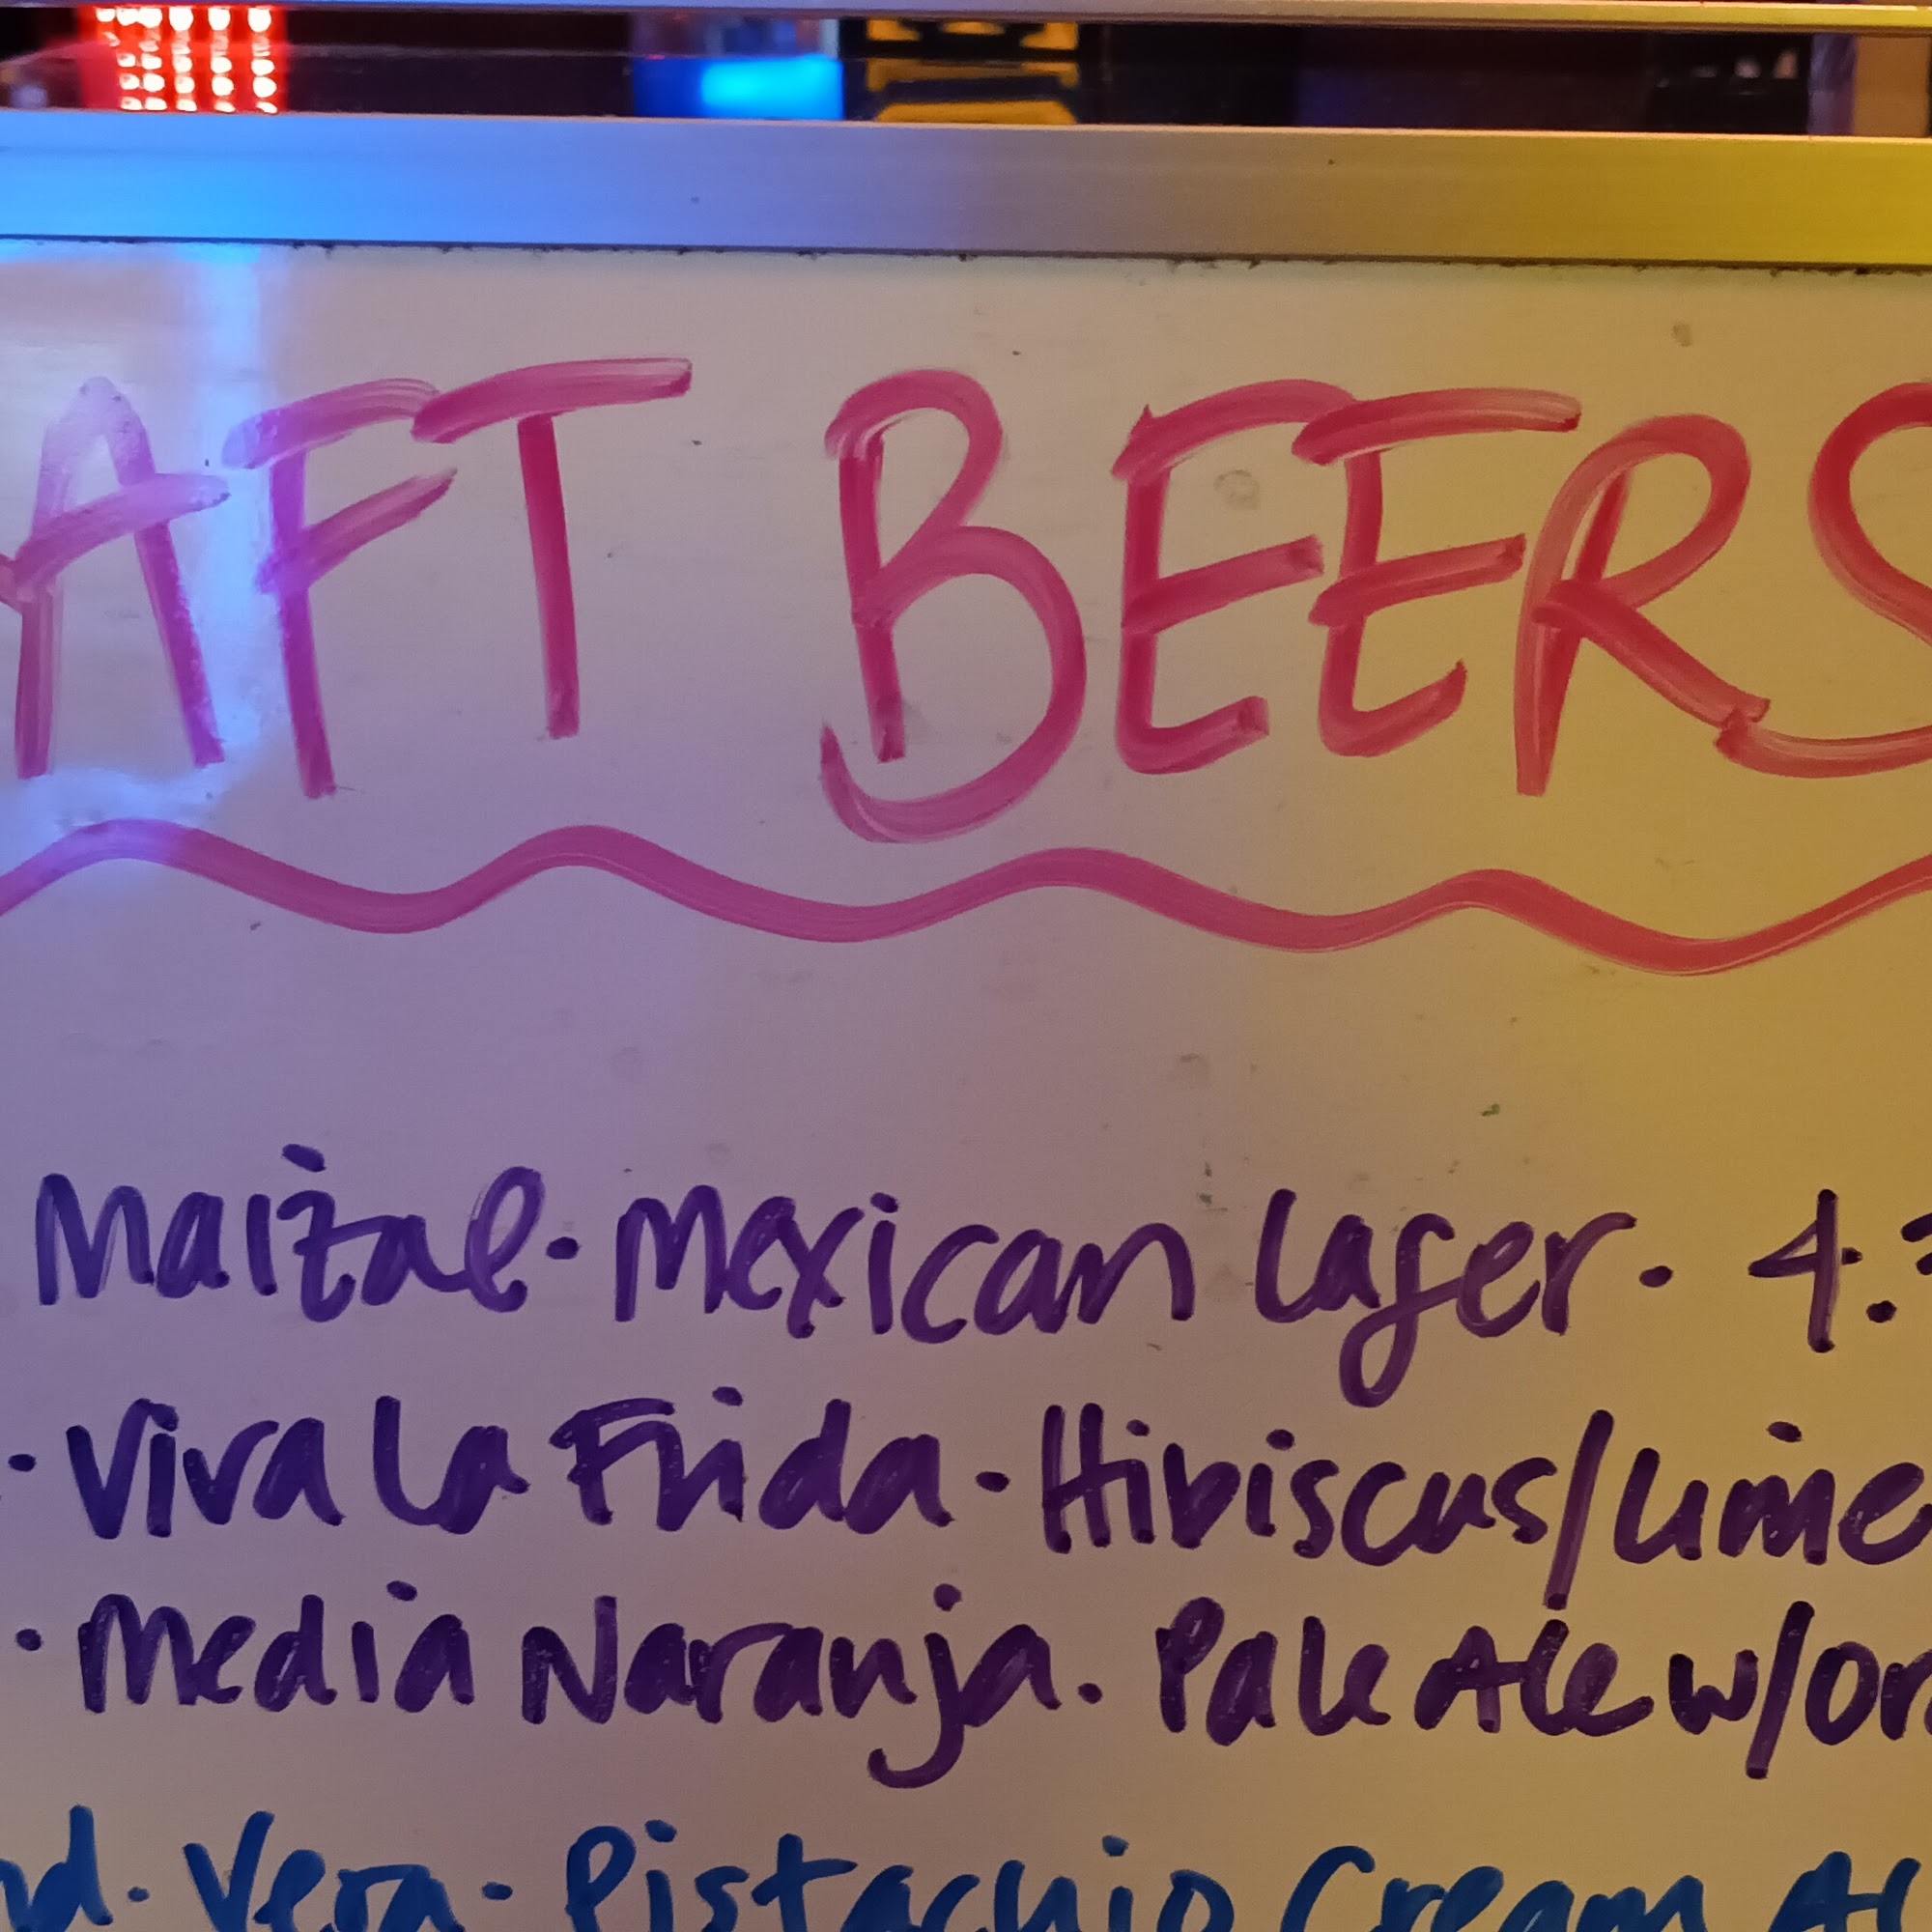 AFT BEERS
Maizal. Mexican Lager. 4.
. Viva La Frida - Hibiscus/Lime
. Media Naranja. Pale Ale w/or
nd. Vera. Pistachio Cream Al